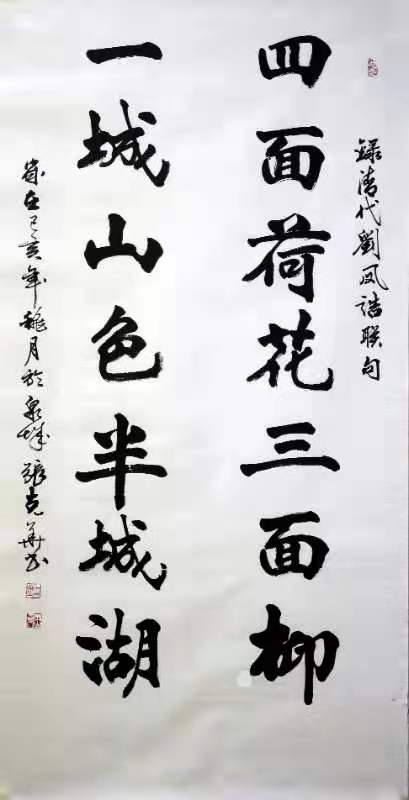 錄清代劉凤誥联句
四面荷花三面柳
一城山色半城湖
歲在己亥年穐月於泉城張克華书